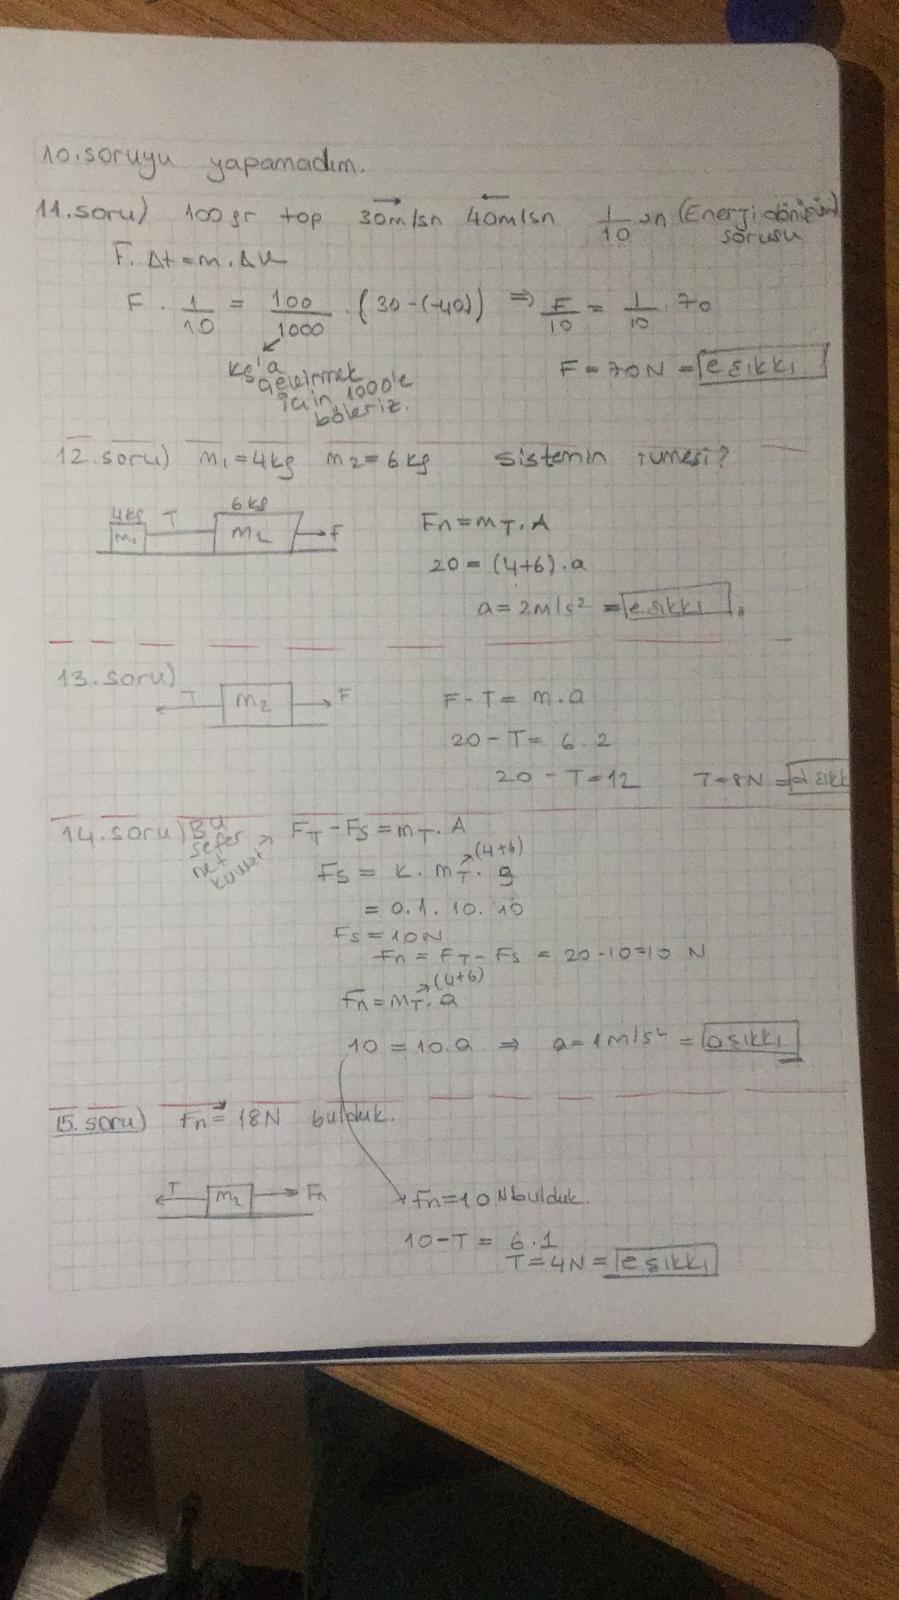 10.soruyu yapamadım.
11.soru) 100gr top 30m/sn 40m/sn 1/10 sn (Enerji dönüşüm sorusu
F. Δt = m. Δv
F . 1/10 = 100/1000 . (30-(-40)) ⇒ F/10 = 1/10 . 70
kg'a çevirmek için 1000'e böleriz.
F = 70N = e şıkkı
12.soru) m₁=4kg m₂=6kg sistemin ivmesi?
4kg T 6kg
m₁ m₂ F
Fn = mT . A
20 = (4+6).a
a = 2m/s² = e şıkkı
13.soru)
T m₂ F
F - T = m.a
20 - T = 6.2
20 - T = 12 T=8N = d şıkk
14.soru) Bu sefer net kuvvet → FT - Fs = mT. A
Fs = k. mT. g (4+6)
= 0.1. 10. 10
Fs = 10N
Fn = FT - Fs = 20-10=10 N
Fn = mT. a (4+6)
10 = 10.a ⇒ a=1m/s² = a şıkkı
15.soru) Fn = 18N bulduk.
T m₂ Fn
Fn=10 N bulduk.
10-T = 6.1
T=4N = e şıkkı